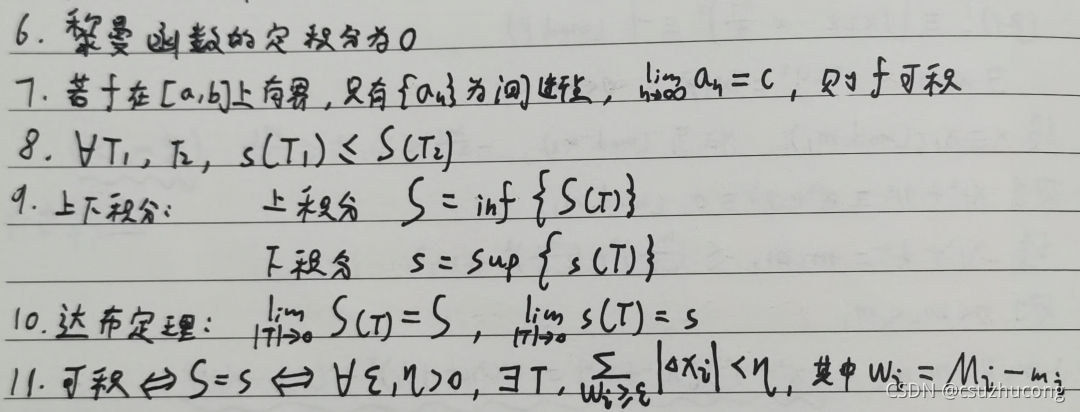 6. 黎曼函数的定积分为0
7. 若f在[a,b]上有界，只有{aₙ}为间断点，lim n→∞ aₙ = c，则f可积
8. ∀T₁, T₂, s(T₁) ≤ S(T₂)
9. 上下积分： 上积分 S = inf {S(T)}
下积分 s = sup {s(T)}
10. 达布定理： lim |T|→0 S(T) = S， lim |T|→0 s(T) = s
11. 可积 ⇔ S = s ⇔ ∀ε,η>0, ∃T, ∑ wᵢ≥ε |Δxᵢ| < η，其中 wᵢ = Mᵢ - mᵢ
CSDN @csuzhucong